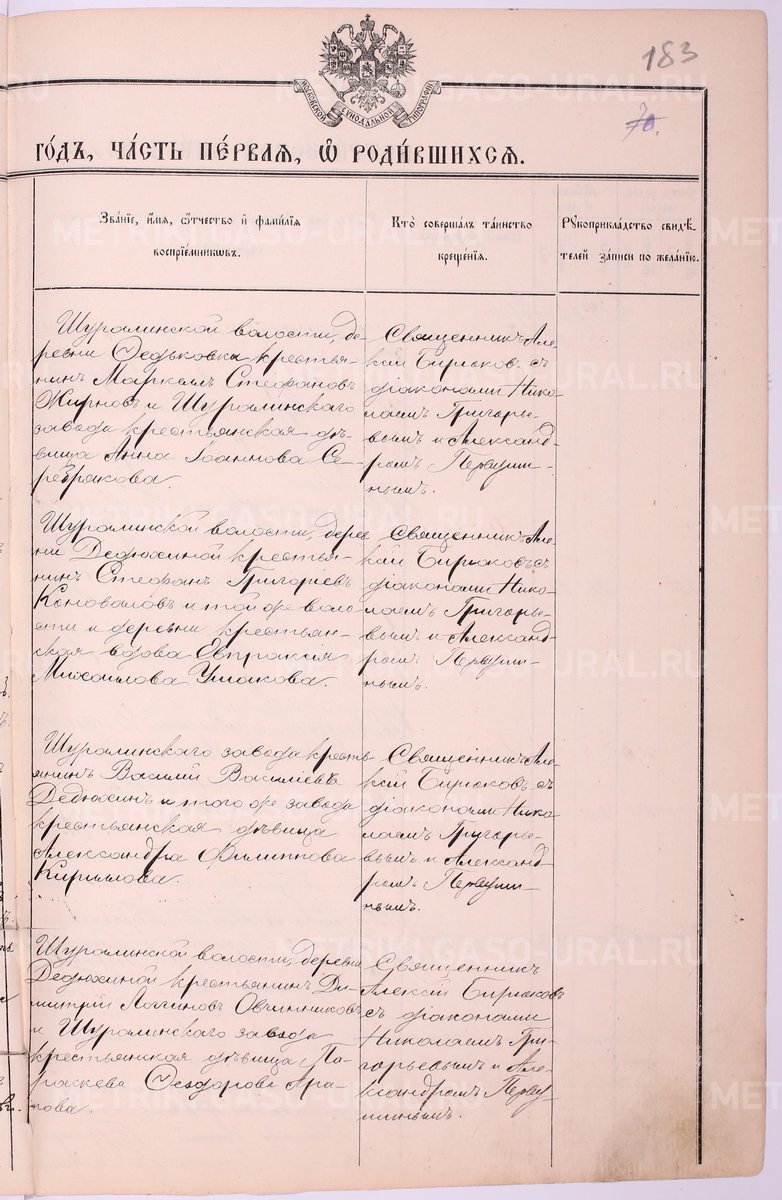 183
70.
МОСКОВСКОЙ СѴНОДАЛЬНОЙ ТИПОГРАФІИ
ГО́ДЪ, ЧА́СТЬ ПЕ́РВАЯ, Ѡ҆ РОДИ́ВШИХСЯ.
Зва́нїе, и҆́мя, ѻ҆́тчество и҆ фами́лїя
воспрїе́мникѡвъ.
Кто̀ соверша́лъ та́инство
креще́нїя.
Рꙋкоприкла́дство свидѣ́
телей за́писи по жела́нїю.
Шуралинской волости, де-
ревни Ѳедьковки крестья-
нинъ Маркелъ Стефановъ
Жирновъ и Шуралинскаго
завода крестьянская дѣ-
вица Анна Іоаннова Се-
ребрякова.
Священникъ Але-
ксій Бирюковъ съ
діаконами Нико-
лаемъ Григорье-
вымъ и Александ-
ромъ Первуши-
нымъ.
Шуралинской волости, дерев
ни Дедюхиной крестья-
нинъ Стефанъ Григорьевъ
Коноваловъ и той же воло
сти и деревни крестьян-
ская вдова Евпраксія
Михаилова Ушакова.
Священникъ Але-
ксій Бирюковъ съ
діаконами Нико-
лаемъ Григорье-
вымъ и Александ-
ромъ Первуши-
нымъ.
Шуралинскаго завода кресть
янинъ Василій Василіевъ
Дедюхинъ и того же завода
крестьянская дѣвица
Александра Филиппова
Кириллова.
Священникъ Але
ксій Бирюковъ съ
діаконами Нико
лаемъ Григорье-
вымъ и Александ
ромъ Первуши-
нымъ.
Шуралинской волости, деревни
Дедюхиной крестьянинъ Ди-
митрій Логиновъ Овчинниковъ
и Шуралинскаго завода
крестьянская дѣвица Па-
раскева Ѳеодорова Ара-
пова.
Священникъ
Алексій Бирюковъ
съ діаконами
Николаемъ Гри-
горьевымъ и Але-
ксандромъ Перву
шинымъ.
METRIKI.GASO-URAL.RU